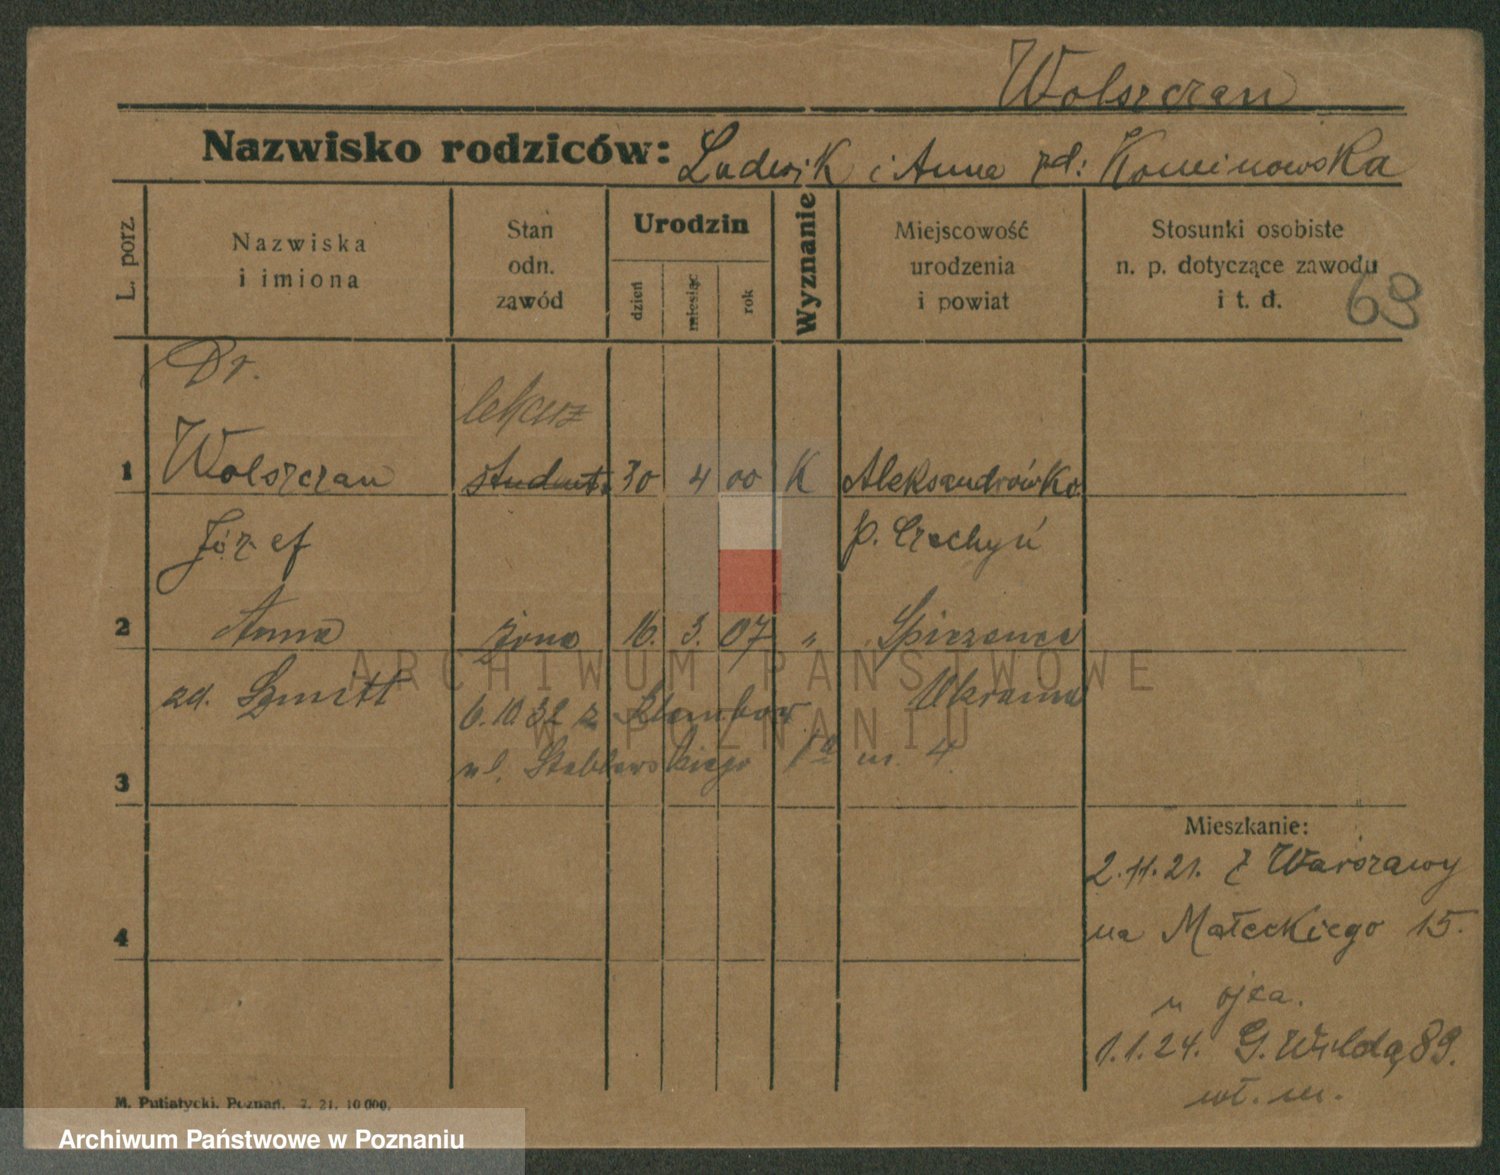 Wolszczan
Nazwisko rodziców: Ludwik i Anna zd: Kominowska
L. porz.
Nazwiska
i imiona
Stan
odn.
zawód
Urodzin
dzień
miesiąc
rok
Wyznanie
Miejscowość
urodzenia
i powiat
Stosunki osobiste
n. p. dotyczące zawodu
i t. d.
68
Dr.
lekarz
1 Wolszczan student. 30 4 00 K Aleksandrówka
Józef p. Czechyń
2 Anna żona 16. 3. 07 " Spiczance
zd. Szmitt Ukraina
6.10.32 z
ul. Stablewskiego 1a m. 4
3
Mieszkanie:
2.11.21. z Warszawy
na Małeckiego 15.
4
u ojca.
1.1.24. G. Wilda 89.
wł. m.
M. Putiatycki, Poznań. 7. 21. 10 000.
ARCHIWUM PAŃSTWOWE
W POZNANIU
Archiwum Państwowe w Poznaniu